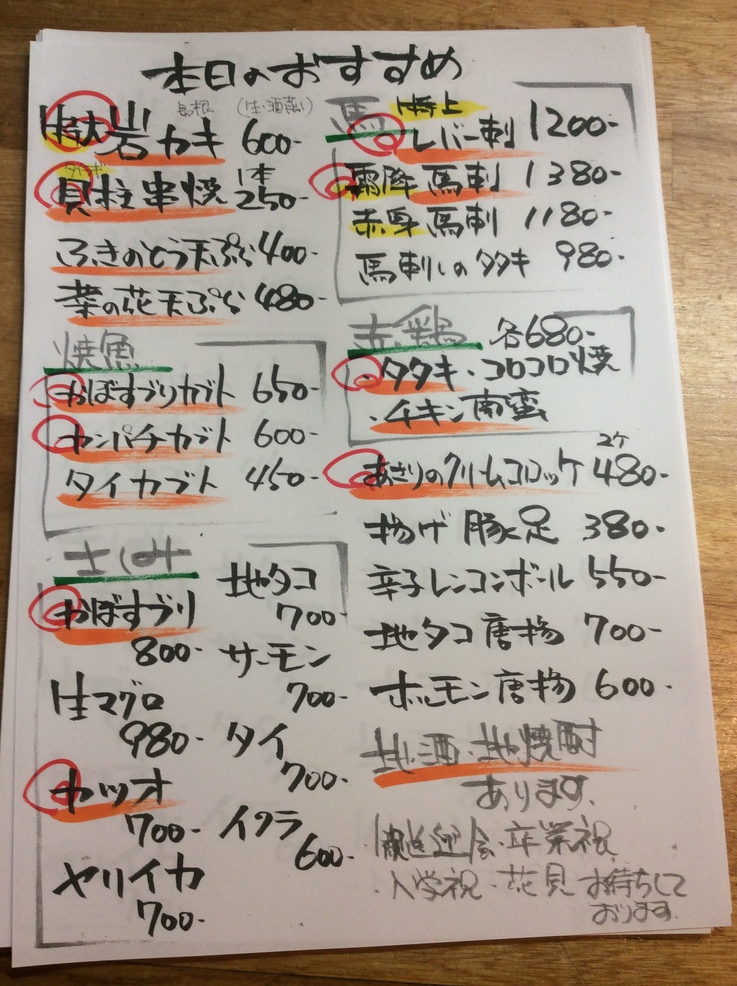 本日のおすすめ
島根 (生・酒蒸し)
特大岩カキ 600-
タイラギ 1本
貝柱串焼 250-
ふきのとう天ぷら 400-
菜の花天ぷら 480-
焼魚
かぼすブリカブト 650-
カンパチカブト 600-
タイカブト 450-
さしみ
かぼすブリ
800-
生マグロ
980-
カツオ
700-
ヤリイカ
700-
地タコ
700-
サーモン
700-
タイ
700-
イクラ
600-
馬
特上
レバー刺 1200-
霜降馬刺 1380-
赤身馬刺 1180-
馬刺しのタタキ 980-
赤鶏 各680-
・タタキ・コロコロ焼
・チキン南蛮
2ケ
あさりのクリームコロッケ 480-
揚げ豚足 380-
辛子レンコンボール 550-
地タコ唐揚 700-
ホルモン唐揚 600-
地酒・地焼酎
あります。
歓送迎会・卒業祝
・入学祝・花見 お待ちして
おります。